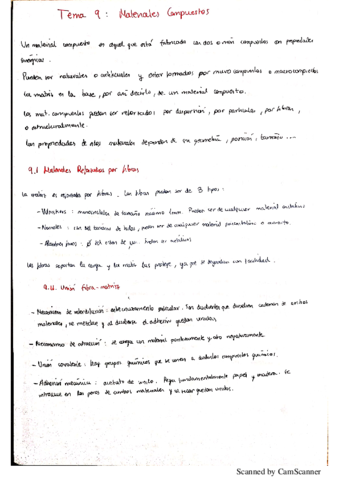 Tema 9: Materiales Compuestos
Un material compuesto es aquel que está fabricado con dos o más compuestos en propiedades
sinérgicas.
Pueden ser naturales o artificiales y estar formados por microcompuestos o macrocompuestos
La matriz es la base, por así decirlo, de un material compuesto.
Los mat. compuestos pueden ser reforzados por dispersión, por partículas, por fibras,
o estructuralmente.
Las propiedades de estos materiales dependen de su geometría, posición, tamaño...
9.1 Materiales Reforzados por fibras
La matriz es reforzada por fibras. Las fibras pueden ser de 3 tipos:
- Whiskers: monocristales de tamaño máximo 1mm. Pueden ser de cualquier material
- Normales: con tal tamaño de hilos, pueden ser de cualquier material policristalino o amorfo.
- Alambres finos: hechos de metálicos
Las fibras soportan la carga y la matriz las protege, ya que se degradan con facilidad.
9.1.1. Unión fibra-matriz
- Mecanismo de interdifusión: entrecruzamiento molecular. Son disolventes que disuelven ambos
materiales, se mezclan y al disolverse el adhesivo quedan unidos.
- Mecanismo de atracción: se carga un material positivamente y otro negativamente.
- Unión covalente: Hay grupos químicos que se unen a similares compuestos químicos.
- Adhesión mecánica: acetato de vinilo. Pega fundamentalmente papel y madera. Se
introduce en los poros de ambos materiales y al secar quedan unidos.
Scanned by CamScanner